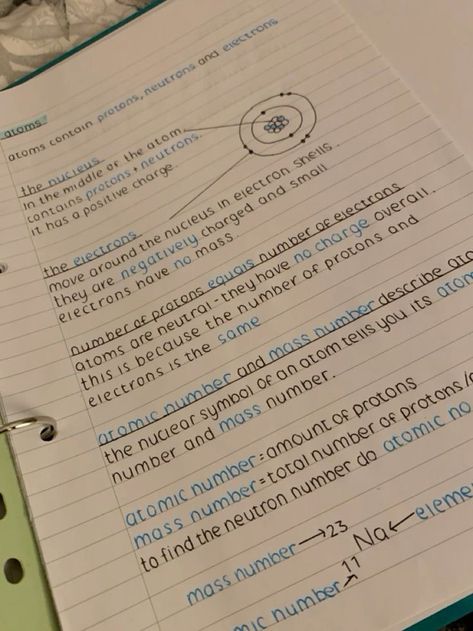 atoms
atoms contain protons, neutrons and electrons
the nucleus
In the middle of the atom.
contains protons + neutrons.
it has a positive charge.
the electrons
move around the nucleus in electron shells.
they are negatively charged and small
electrons have no mass.
number of protons equals number of electrons
atoms are neutral - they have no charge overall.
this is because the number of protons and
electrons is the same
atomic number and mass number describe ato
the nuclear symbol of an atom tells you its atom
number and mass number.
atomic number = amount of protons
mass number = total number of protons/
to find the neutron number do atomic no
mass number → 23
Na ← eleme
mic number → 11